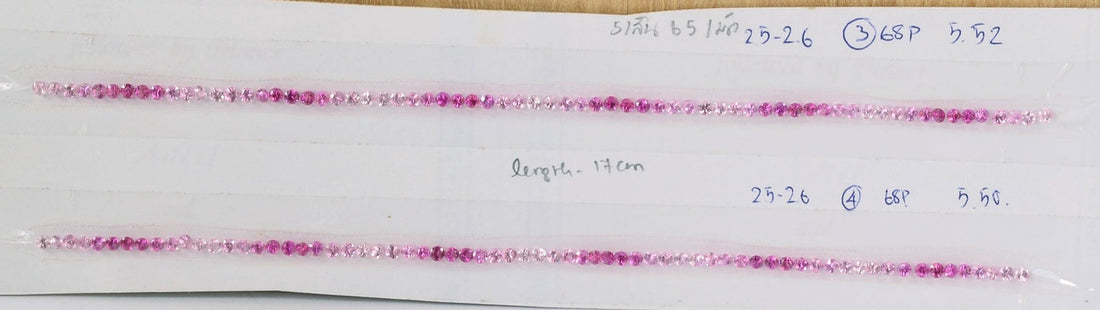 5 เส้น 65 เม็ด 25-26 ③ 68P 5.52
length - 17 cm
25-26 ④ 68P. 5.50.